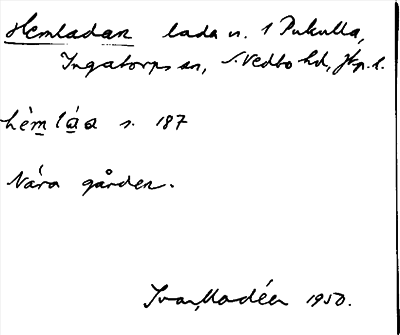 Hemladan lada n. 1 Pukulla,
Ingatorps sn, S. Vedbo hd, Jkp. l.
hèmláa s. 187
Nära gården.
Ivar Modéer 1950.